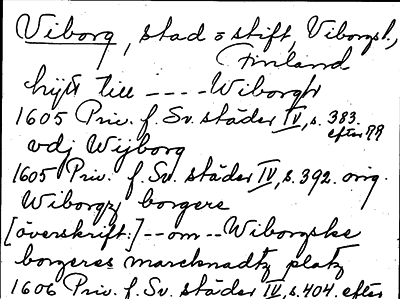 Viborg, stad o stift, Viborgsl.,
Finland
hijtt till ---- Wiborgh
1605 Priv. f. Sv. städer IV, s. 383.
efter
vdj Wijborg
1605 Priv. f. Sv. städer IV, s. 392. orig.
Wiborgz borgere
[överskrift:] -- om -- Wiborgske
borgeres marcknadtz platz
1606 Priv. f. Sv. städer IV, s. 404. efter